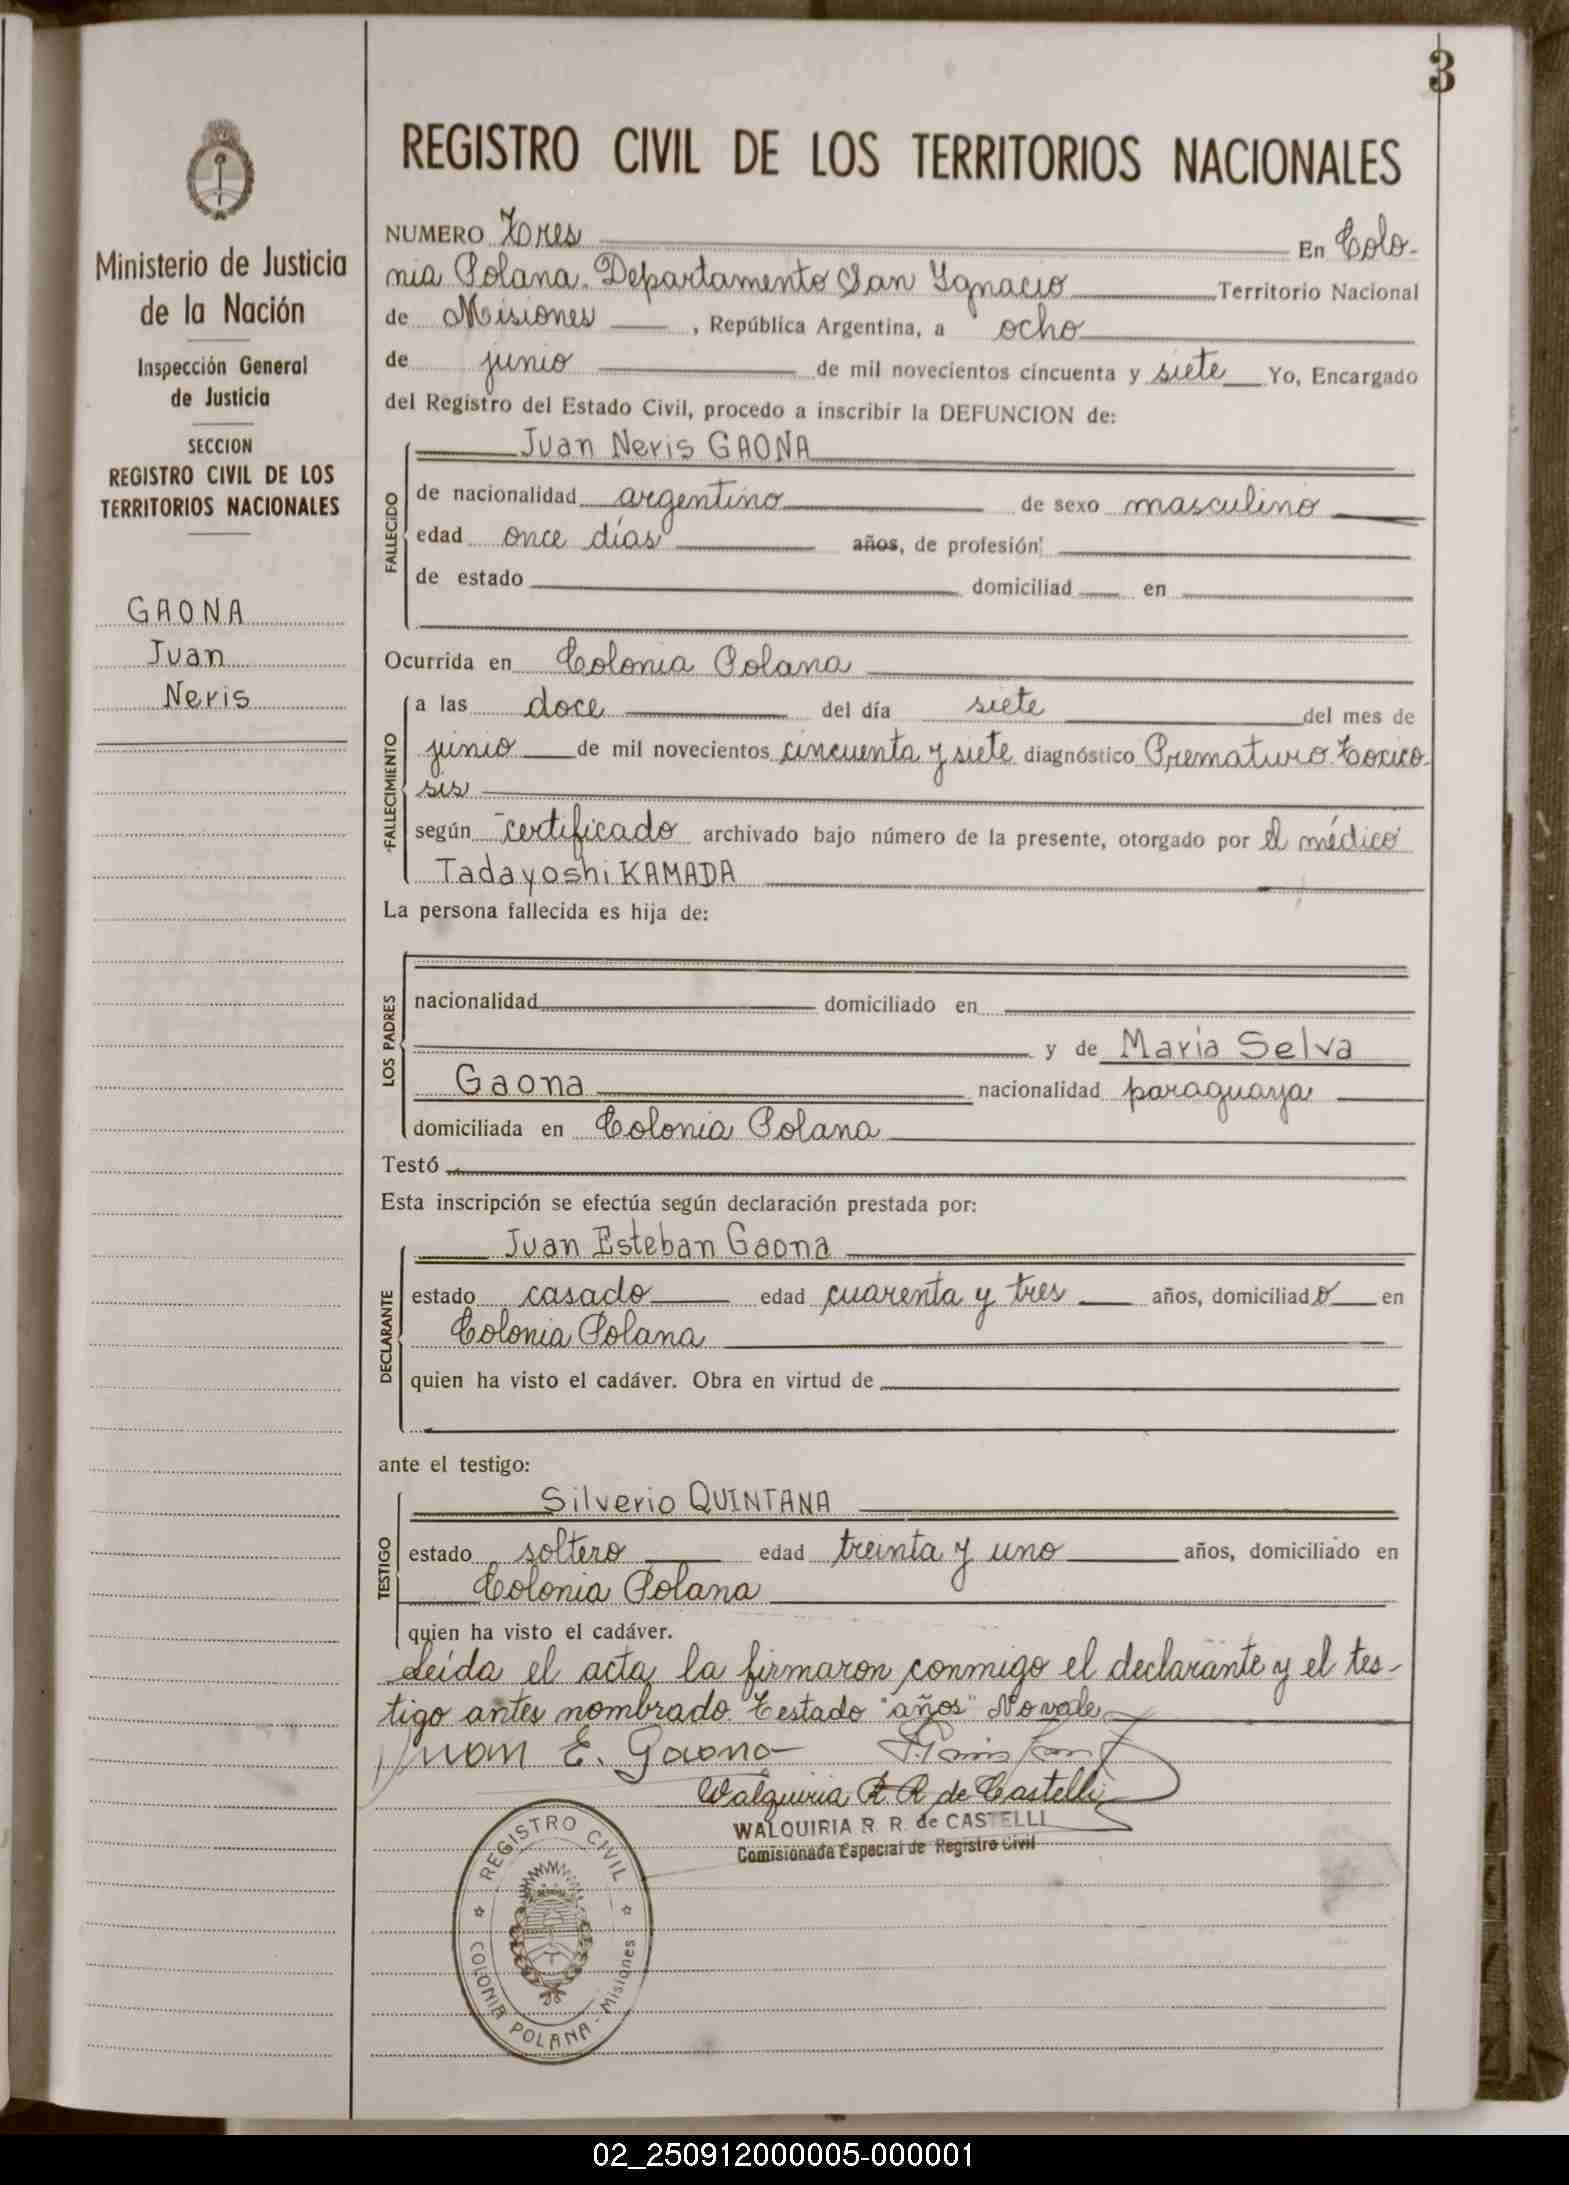 3
REGISTRO CIVIL DE LOS TERRITORIOS NACIONALES
Ministerio de Justicia
de la Nación
Inspección General
de Justicia
SECCION
REGISTRO CIVIL DE LOS
TERRITORIOS NACIONALES
GAONA
Juan
Neris
NUMERO Tres En Colo-
nia Polana. Departamento San Ygnacio Territorio Nacional
de Misiones, República Argentina, a ocho
de junio de mil novecientos cincuenta y siete Yo, Encargado
del Registro del Estado Civil, procedo a inscribir la DEFUNCION de:
FALLECIDO
Juan Neris GAONA
de nacionalidad argentino de sexo masculino
edad once días años, de profesión
de estado domiciliad en
Ocurrida en Colonia Polana
FALLECIMIENTO
a las doce del día siete del mes de
junio de mil novecientos cincuenta y siete diagnóstico Prematuro. Toxico-
sis
según certificado archivado bajo número de la presente, otorgado por El médico
Tadayoshi KAMADA
La persona fallecida es hija de:
LOS PADRES
nacionalidad domiciliado en
y de Maria Selva
Gaona nacionalidad paraguaya
domiciliada en Colonia Polana
Testó
Esta inscripción se efectúa según declaración prestada por:
DECLARANTE
Juan Esteban Gaona
estado casado edad cuarenta y tres años, domiciliado en
Colonia Polana
quien ha visto el cadáver. Obra en virtud de
ante el testigo:
TESTIGO
Silverio QUINTANA
estado soltero edad treinta y uno años, domiciliado en
Colonia Polana
quien ha visto el cadáver.
Leída el acta, la firmaron conmigo el declarante y el tes-
tigo antes nombrado. Testado "años" No vale
Juan E. Gaona
Walquiria R. R. de Castelli
WALQUIRIA R. R. de CASTELLI
Comisionada Especial de Registro Civil
REGISTRO CIVIL
COLONIA POLANA - Misiones
02_250912000005-000001